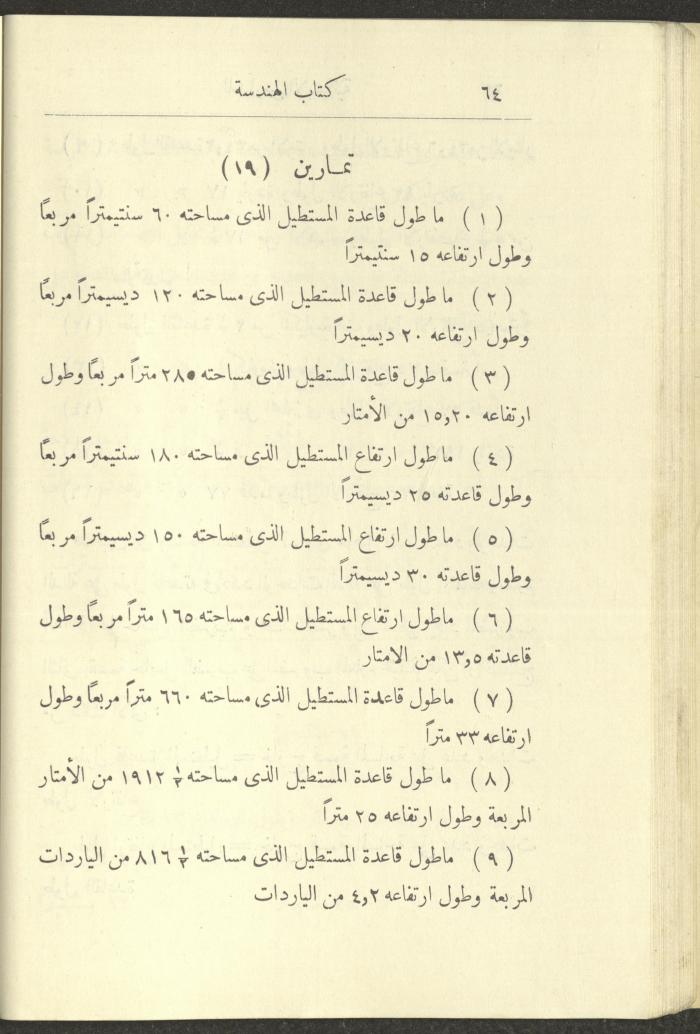 ٦٤ كتاب الهندسة
تمارين (١٩)
(١) ما طول قاعدة المستطيل الذى مساحته ٦٠ سنتيمتراً مربعاً
وطول ارتفاعه ١٥ سنتيمتراً
(٢) ما طول قاعدة المستطيل الذى مساحته ١٢٠ ديسيمتراً مربعاً
وطول ارتفاعه ٢٠ ديسيمتراً
(٣) ما طول قاعدة المستطيل الذى مساحته ٢٨٥ متراً مربعاً وطول
ارتفاعه ١٥٫٢٠ من الأمتار
(٤) ما طول ارتفاع المستطيل الذى مساحته ١٨٠ سنتيمتراً مربعاً
وطول قاعدته ٢٥ ديسيمتراً
(٥) ما طول ارتفاع المستطيل الذى مساحته ١٥٠ ديسيمتراً مربعاً
وطول قاعدته ٣٠ ديسيمتراً
(٦) ماطول ارتفاع المستطيل الذى مساحته ١٦٥ متراً مربعاً وطول
قاعدته ١٣٫٥ من الامتار
(٧) ماطول قاعدة المستطيل الذى مساحته ٦٦٠ متراً مربعاً وطول
ارتفاعه ٣٣ متراً
(٨) ما طول قاعدة المستطيل الذى مساحته ١/٢ ١٩١٢ من الأمتار
المربعة وطول ارتفاعه ٢٥ متراً
(٩) ماطول قاعدة المستطيل الذى مساحته ١/٢ ٨١٦ من الياردات
المربعة وطول ارتفاعه ٤٫٢ من الياردات